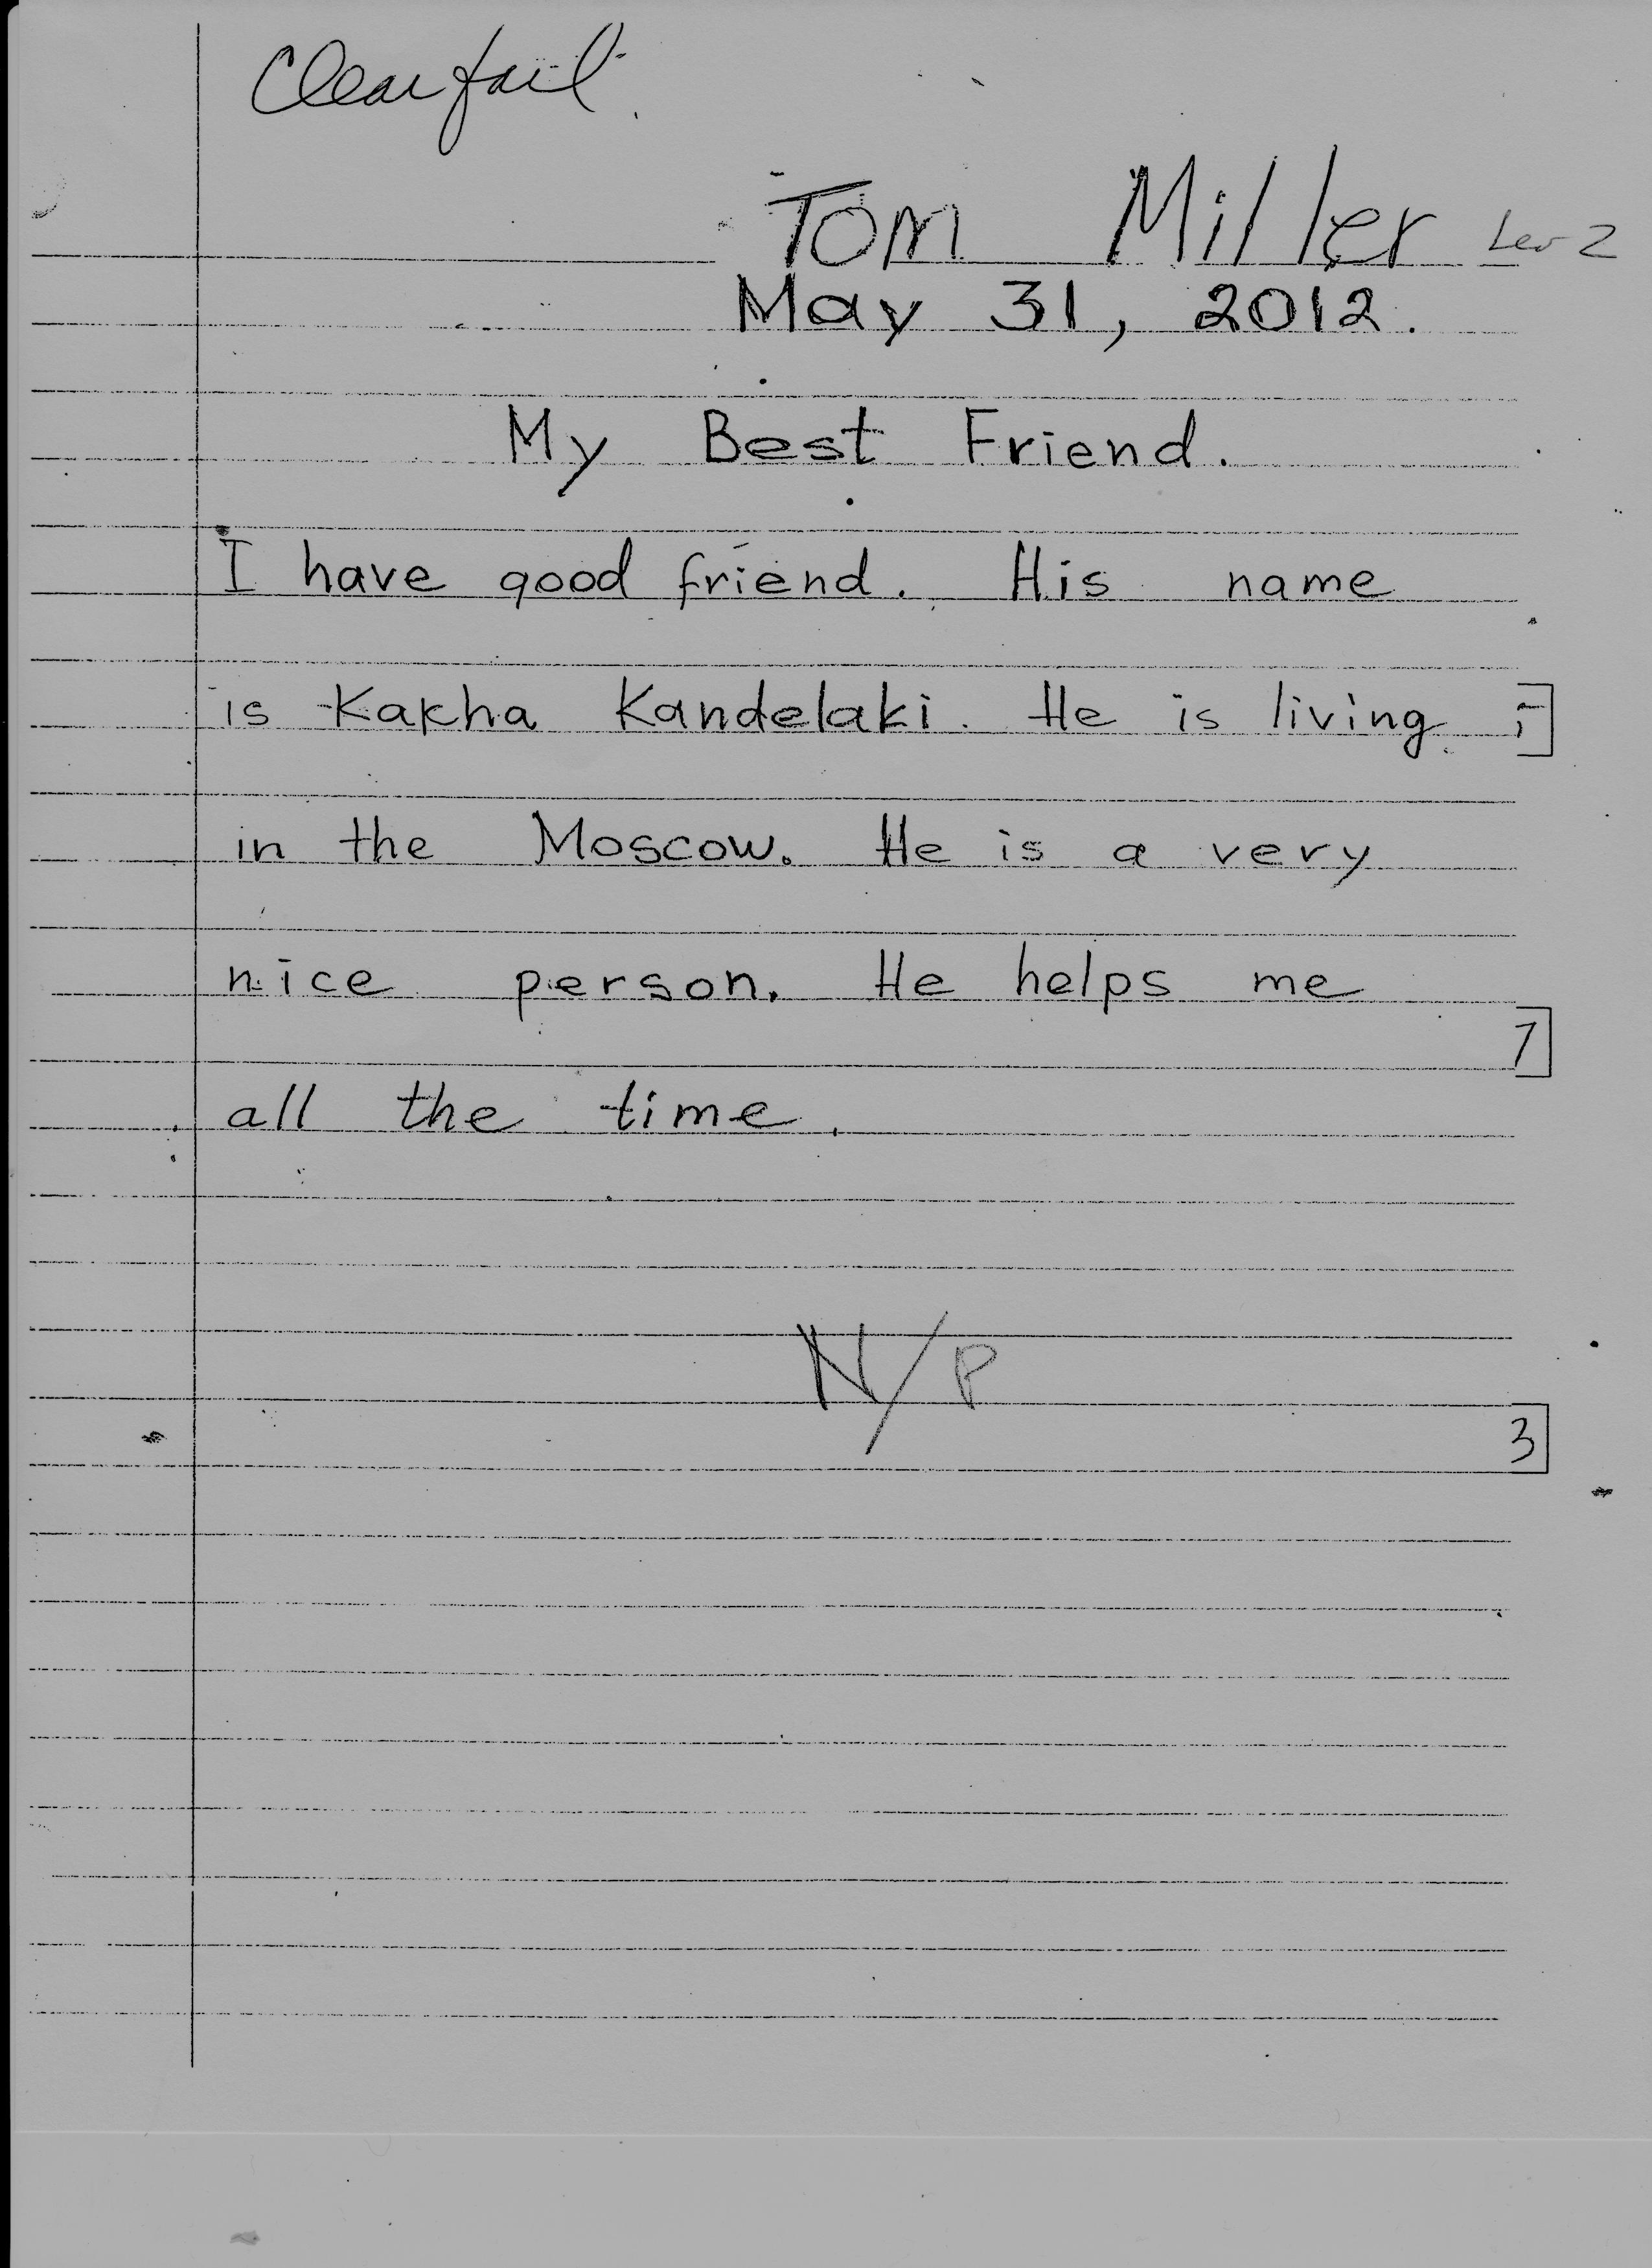 Clear fail.
Tom Miller Lev 2
May 31, 2012.
My Best Friend.
I have good friend. His name
is Kakha Kandelaki. He is living
in the Moscow. He is a very
nice person. He helps me
7
all the time.
N/P
3